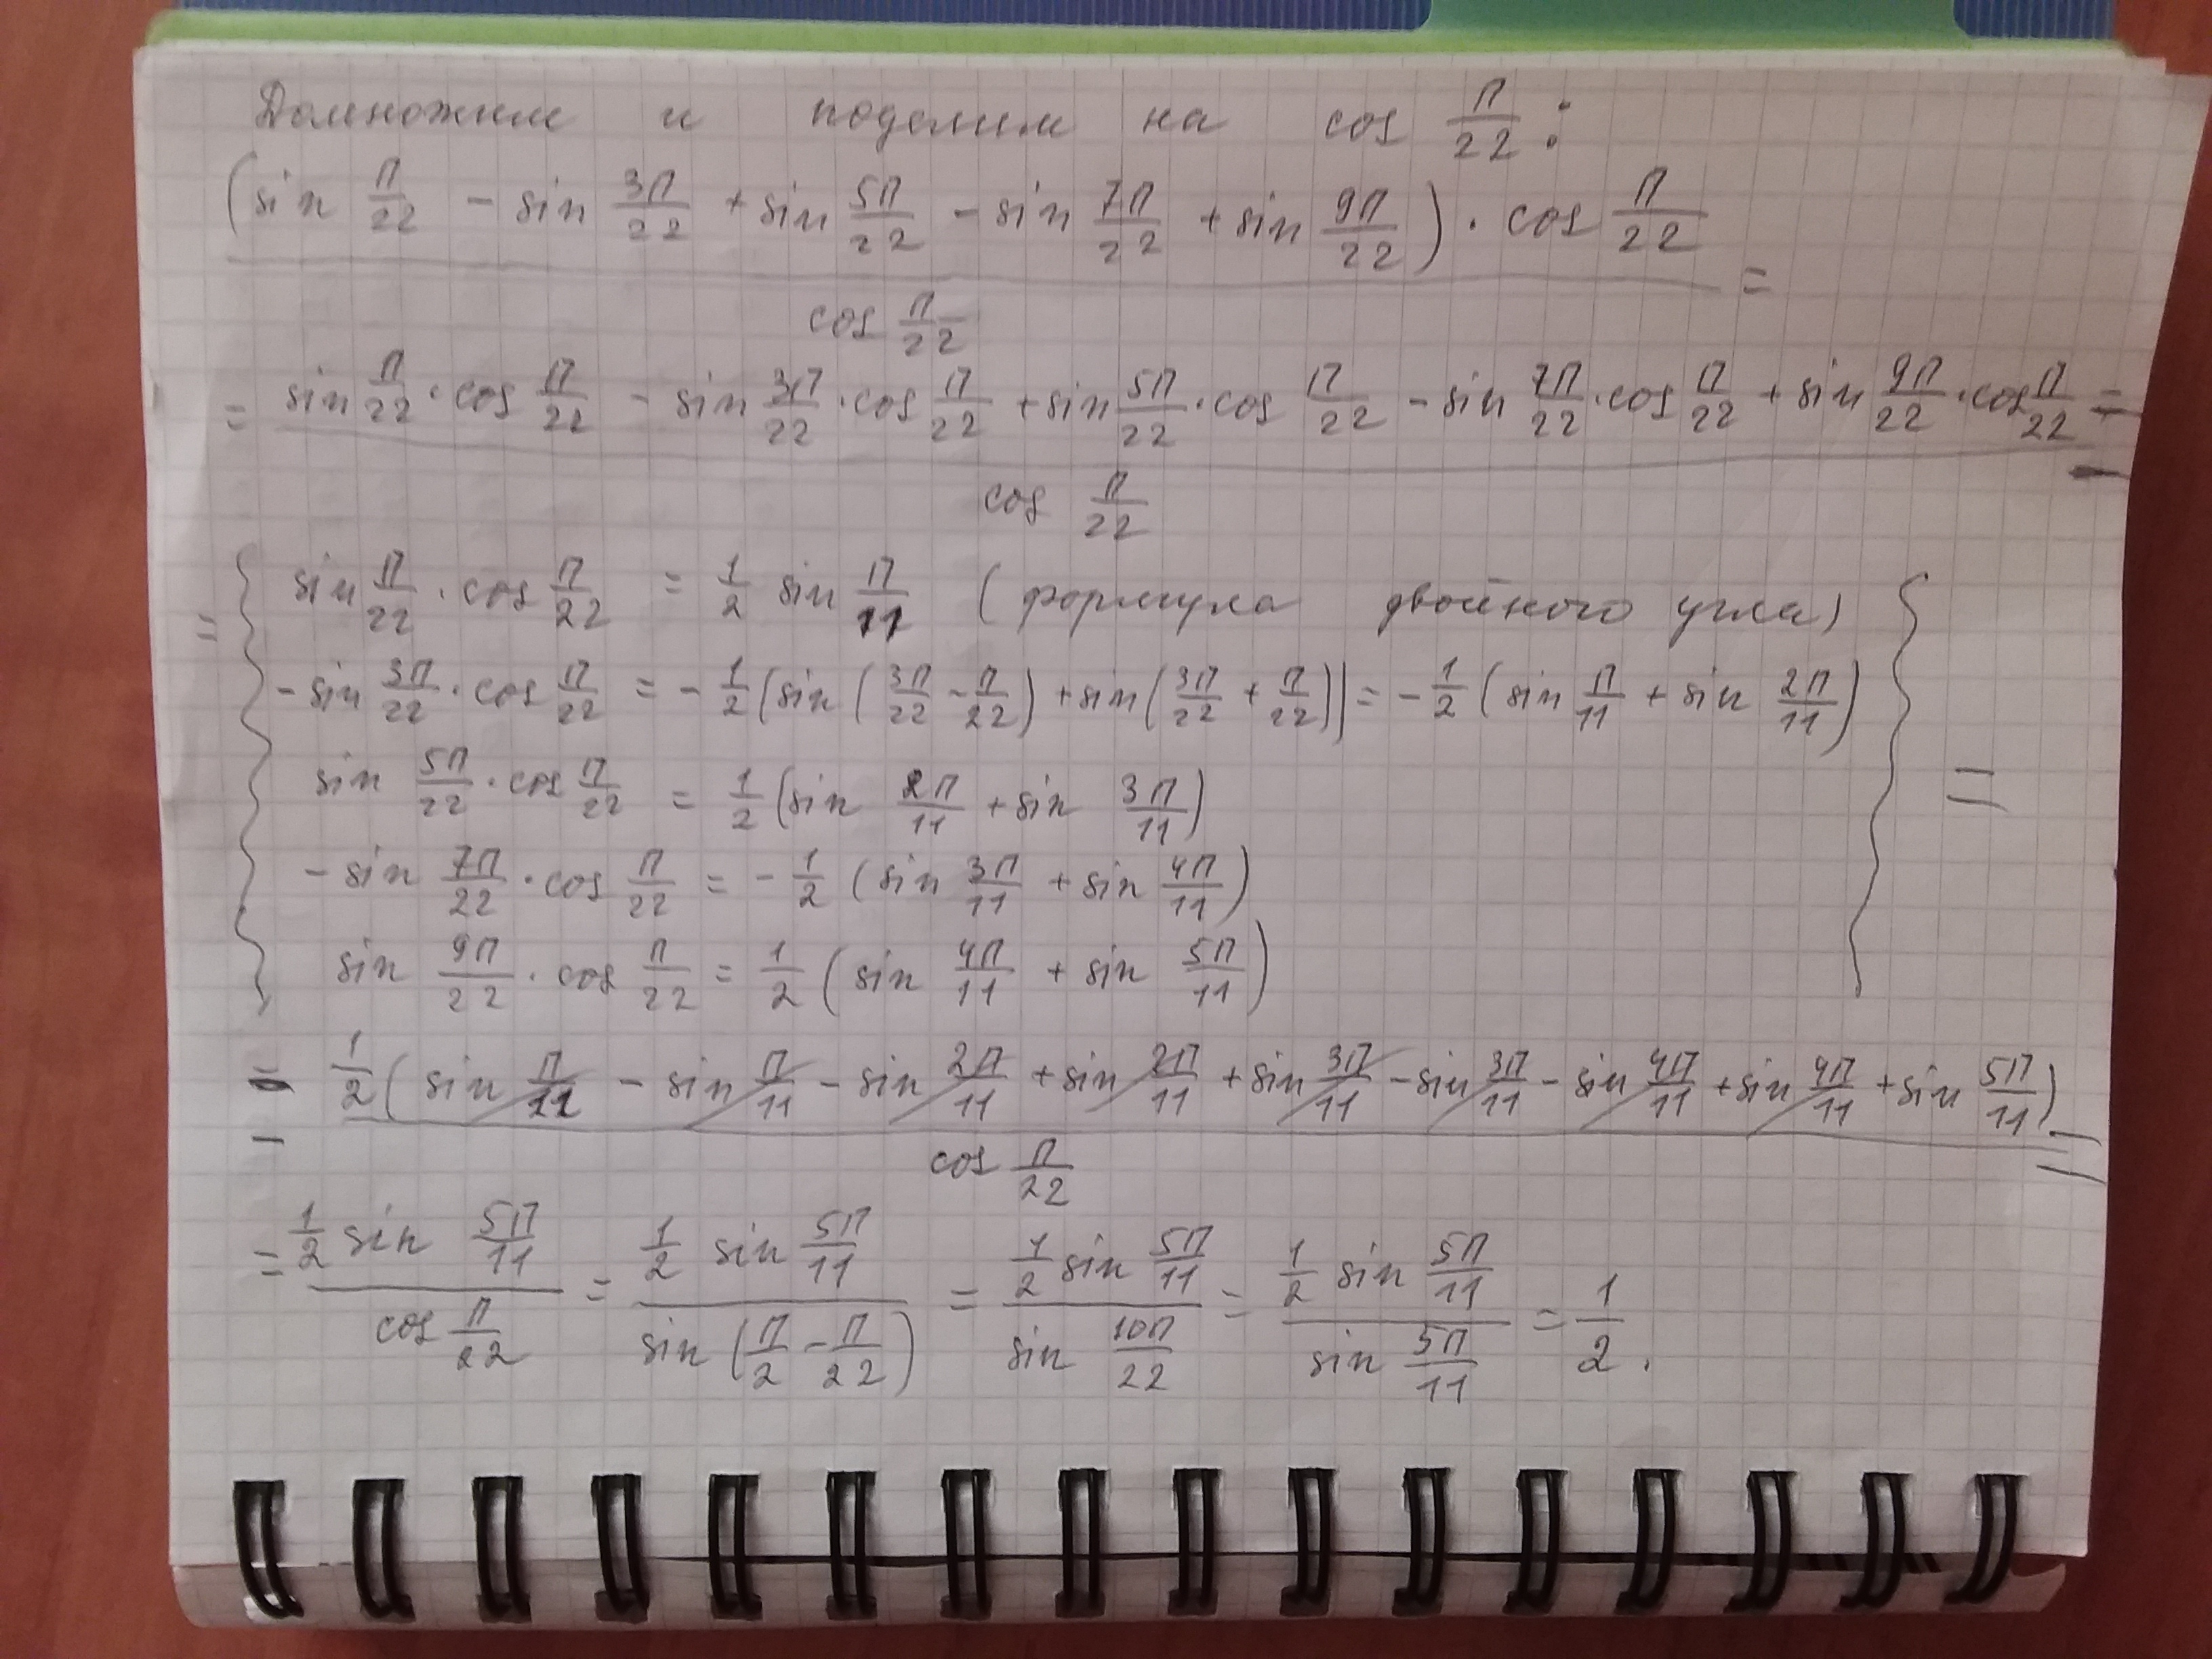 Домножим и поделим на cos π/22 :
(sin π/22 - sin 3π/22 + sin 5π/22 - sin 7π/22 + sin 9π/22) · cos π/22 =
cos π/22
= sin π/22 · cos π/22 - sin 3π/22 · cos π/22 + sin 5π/22 · cos π/22 - sin 7π/22 · cos π/22 + sin 9π/22 · cos π/22 =
cos π/22
= { sin π/22 · cos π/22 = 1/2 sin π/11 (формула двойного угла) } =
- sin 3π/22 · cos π/22 = - 1/2 (sin (3π/22 - π/22) + sin (3π/22 + π/22)) = - 1/2 (sin π/11 + sin 2π/11)
sin 5π/22 · cos π/22 = 1/2 (sin 2π/11 + sin 3π/11)
- sin 7π/22 · cos π/22 = - 1/2 (sin 3π/11 + sin 4π/11)
sin 9π/22 · cos π/22 = 1/2 (sin 4π/11 + sin 5π/11)
= 1/2 (sin π/11 - sin π/11 - sin 2π/11 + sin 2π/11 + sin 3π/11 - sin 3π/11 - sin 4π/11 + sin 4π/11 + sin 5π/11) =
cos π/22
= 1/2 sin 5π/11 / cos π/22 = 1/2 sin 5π/11 / sin (π/2 - π/22) = 1/2 sin 5π/11 / sin 10π/22 = 1/2 sin 5π/11 / sin 5π/11 = 1/2 .